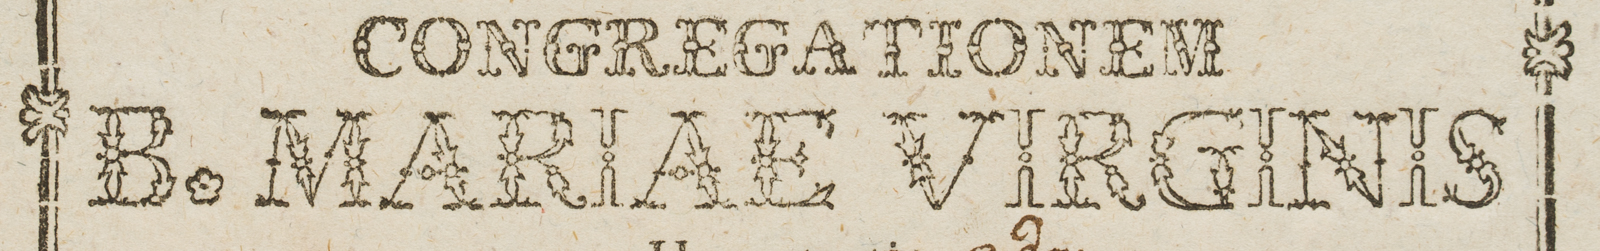 CONGREGATIONEM
B. MARIAE VIRGINIS